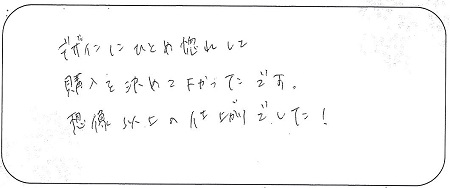 デザインにひとめ惚れして
購入を決めてよかったです。
想像以上の仕上がりでした!